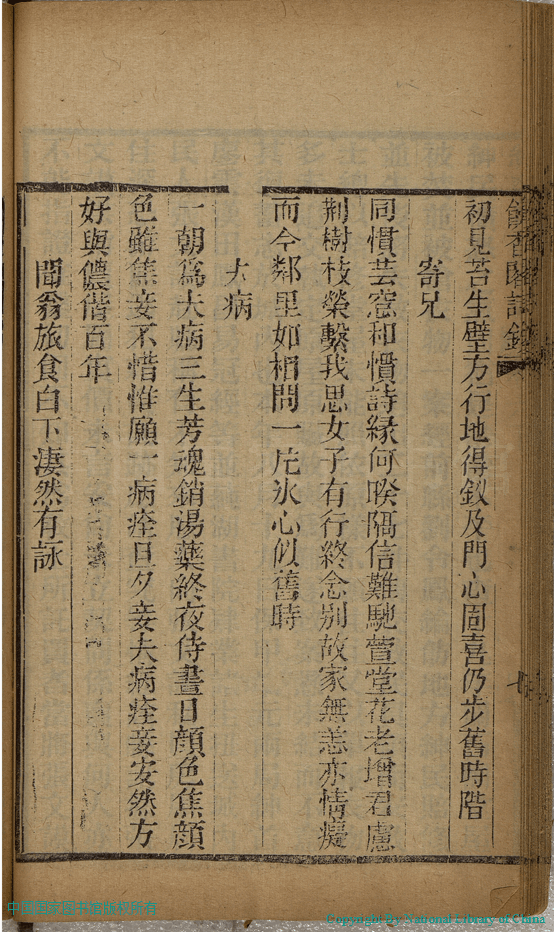 初見苔生壁方行地得釵及門心固喜仍步舊時階
寄兄
同慣芸窓和慣詩緣何暌隔信難馳萱堂花老增君慮
荆樹枝榮繫我思女子有行終念别故家無恙亦情癡
而今鄰里如相問一片氷心似舊時
夫病
一朝爲夫病三生芳魂銷湯藥終夜侍晝日顔色焦顔
色雖焦妾不惜惟願一病痊旦夕妾夫病痊妾安然方
好與儂偕百年
聞翁旅食白下凄然有詠
中国国家图书馆版权所有
Copyright By National Library of China